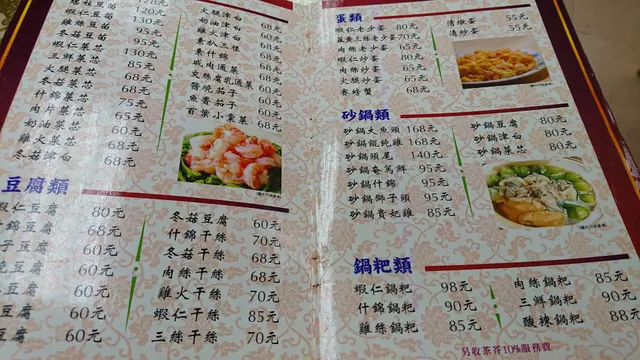 豆苗 120元
蝦仁豆苗 130元
冬菇豆苗 95元
蝦仁菜芯 130元
三鮮菜芯 85元
火腿菜芯 68元
冬菇菜芯 68元
什錦菜芯 75元
肉片菜芯 65元
奶油菜芯 60元
雞火津白 68元
冬菇津白 68元
火腿津白 68元
奶油津白 60元
雞火津白 68元
素扒三徑 68元
素什錦 60元
咸肉通菜 60元
炎絲腐乳通菜 60元
醬燒茄子 60元
魚香茄子 60元
百葉小棠菜 68元
豆腐類
蝦仁豆腐 80元
什錦豆腐 68元
子豆腐 60元
豆腐 60元
豆腐 60元
豆腐 60元
冬菇豆腐 60元
什錦干絲 70元
冬菇干絲 68元
肉絲干絲 68元
雞火干絲 70元
蝦仁干絲 85元
三絲干絲 70元
蛋類
蝦仁老少蛋 80元
韮黃三絲老少蛋 70元
肉絲老少蛋 65元
蝦仁炒蛋 80元
肉絲炒蛋 65元
火腿炒蛋 65元
賽螃蟹 68元
清燉蛋 55元
清炒蛋 55元
砂鍋類
砂鍋大魚頭 168元
砂鍋餛飩雞 168元
砂鍋頭尾 140元
砂鍋奄篤鮮 95元
砂鍋什錦 95元
砂鍋獅子頭 95元
砂鍋貴妃雞 85元
砂鍋豆腐 80元
砂鍋津白 80元
砂鍋菜芯 80元
鍋粑類
蝦仁鍋粑 98元
什錦鍋粑 90元
雞絲鍋粑 85元
肉絲鍋粑 85元
三鮮鍋粑 90元
酸辣鍋粑 88元
另收茶芥10%服務費